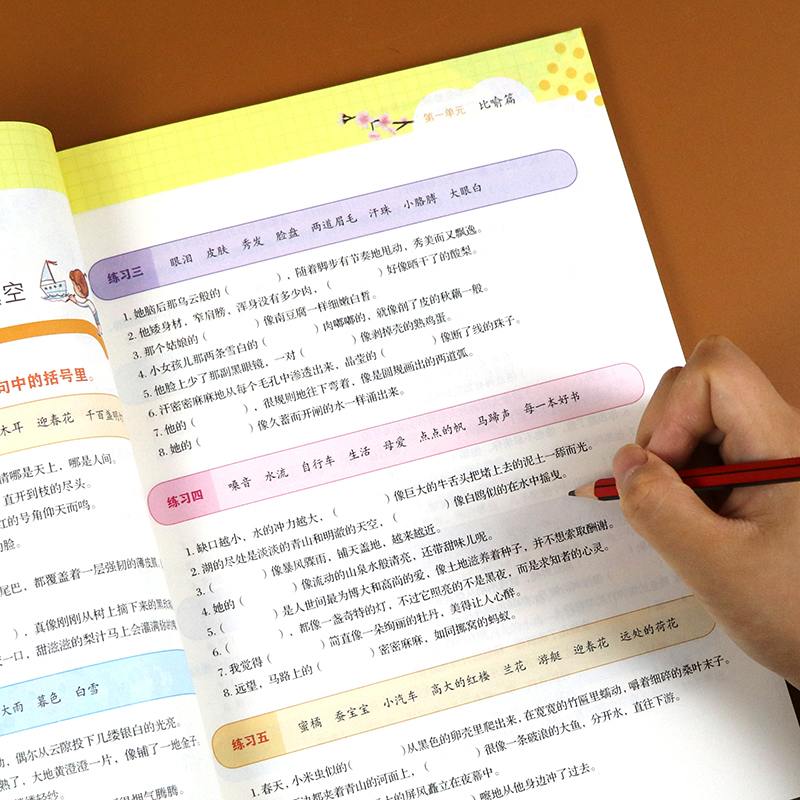 第一单元 比喻篇
练习三 眼泪 皮肤 秀发 脸盘 两道眉毛 汗珠 小胳膊 大眼白
1. 她脑后那乌云般的（ ），随着脚步有节奏地甩动，秀美而又飘逸。
2. 他矮身材，窄肩膀，浑身没有多少肉，（ ）好像晒干了的酸梨。
3. 那个姑娘的（ ）像南豆腐一样细嫩白皙。
4. 小女孩儿那两条雪白的（ ）肉嘟嘟的，就像削了皮的秋藕一般。
5. 他脸上少了那副黑眼镜，一对（ ）像剥掉壳的熟鸡蛋。
6. 汗密密麻麻地从每个毛孔中渗透出来，晶莹的（ ）像断了线的珠子。
7. 他的（ ），很规则地往下弯着，像是圆规画出的两道弧。
8. 她的（ ）像久蓄而开闸的水一样涌出来。
练习四 嗓音 水流 自行车 生活 母爱 点点的帆 马蹄声 每一本好书
1. 缺口越小，水的冲力越大，（ ）像巨大的牛舌头把堵上去的泥土一舔而光。
2. 湖的尽处是淡淡的青山和明澈的天空，（ ）像白鸥似的在水中摇曳。
3. （ ）像暴风骤雨，铺天盖地，越来越近。
4. 她的（ ）像流动的山泉水般清亮，还带甜味儿呢。
5. （ ）是人世间最为博大和高尚的爱，像土地滋养着种子，并不想索取酬谢。
6. （ ），都像一盏奇特的灯，不过它照亮的不是黑夜，而是求知者的心灵。
7. 我觉得（ ）简直像一朵绚丽的牡丹，美得让人心醉。
8. 远望，马路上的（ ）密密麻麻，如同挪窝的蚂蚁。
练习五 蜜橘 蚕宝宝 小汽车 高大的红楼 兰花 游艇 迎春花 远处的荷花
1. 春天，小米虫似的（ ）从黑色的卵壳里爬出来，在宽宽的竹匾里蠕动，嚼着细碎的桑叶末子。
边都夹着青山的河面上，（ ）很像一条破浪的大鱼，分开水，直往下游。
的屏风矗立在夜幕中。
嚓地从他身边冲了过去。
空
句中的括号里。
木耳 迎春花 千百盏明
清哪是天上，哪是人间。
直开到枝的尽头。
的号角仰天而鸣。
的脸。
尾巴，都覆盖着一层强韧的薄
），真像刚刚从树上摘下来的黑
一口，甜滋滋的梨汁马上会灌满
大雨 暮色 白雪
，偶尔从云隙投下几缕银白的光亮。
熟了，大地黄澄澄一片，像铺了一地金子
缕轻纱。